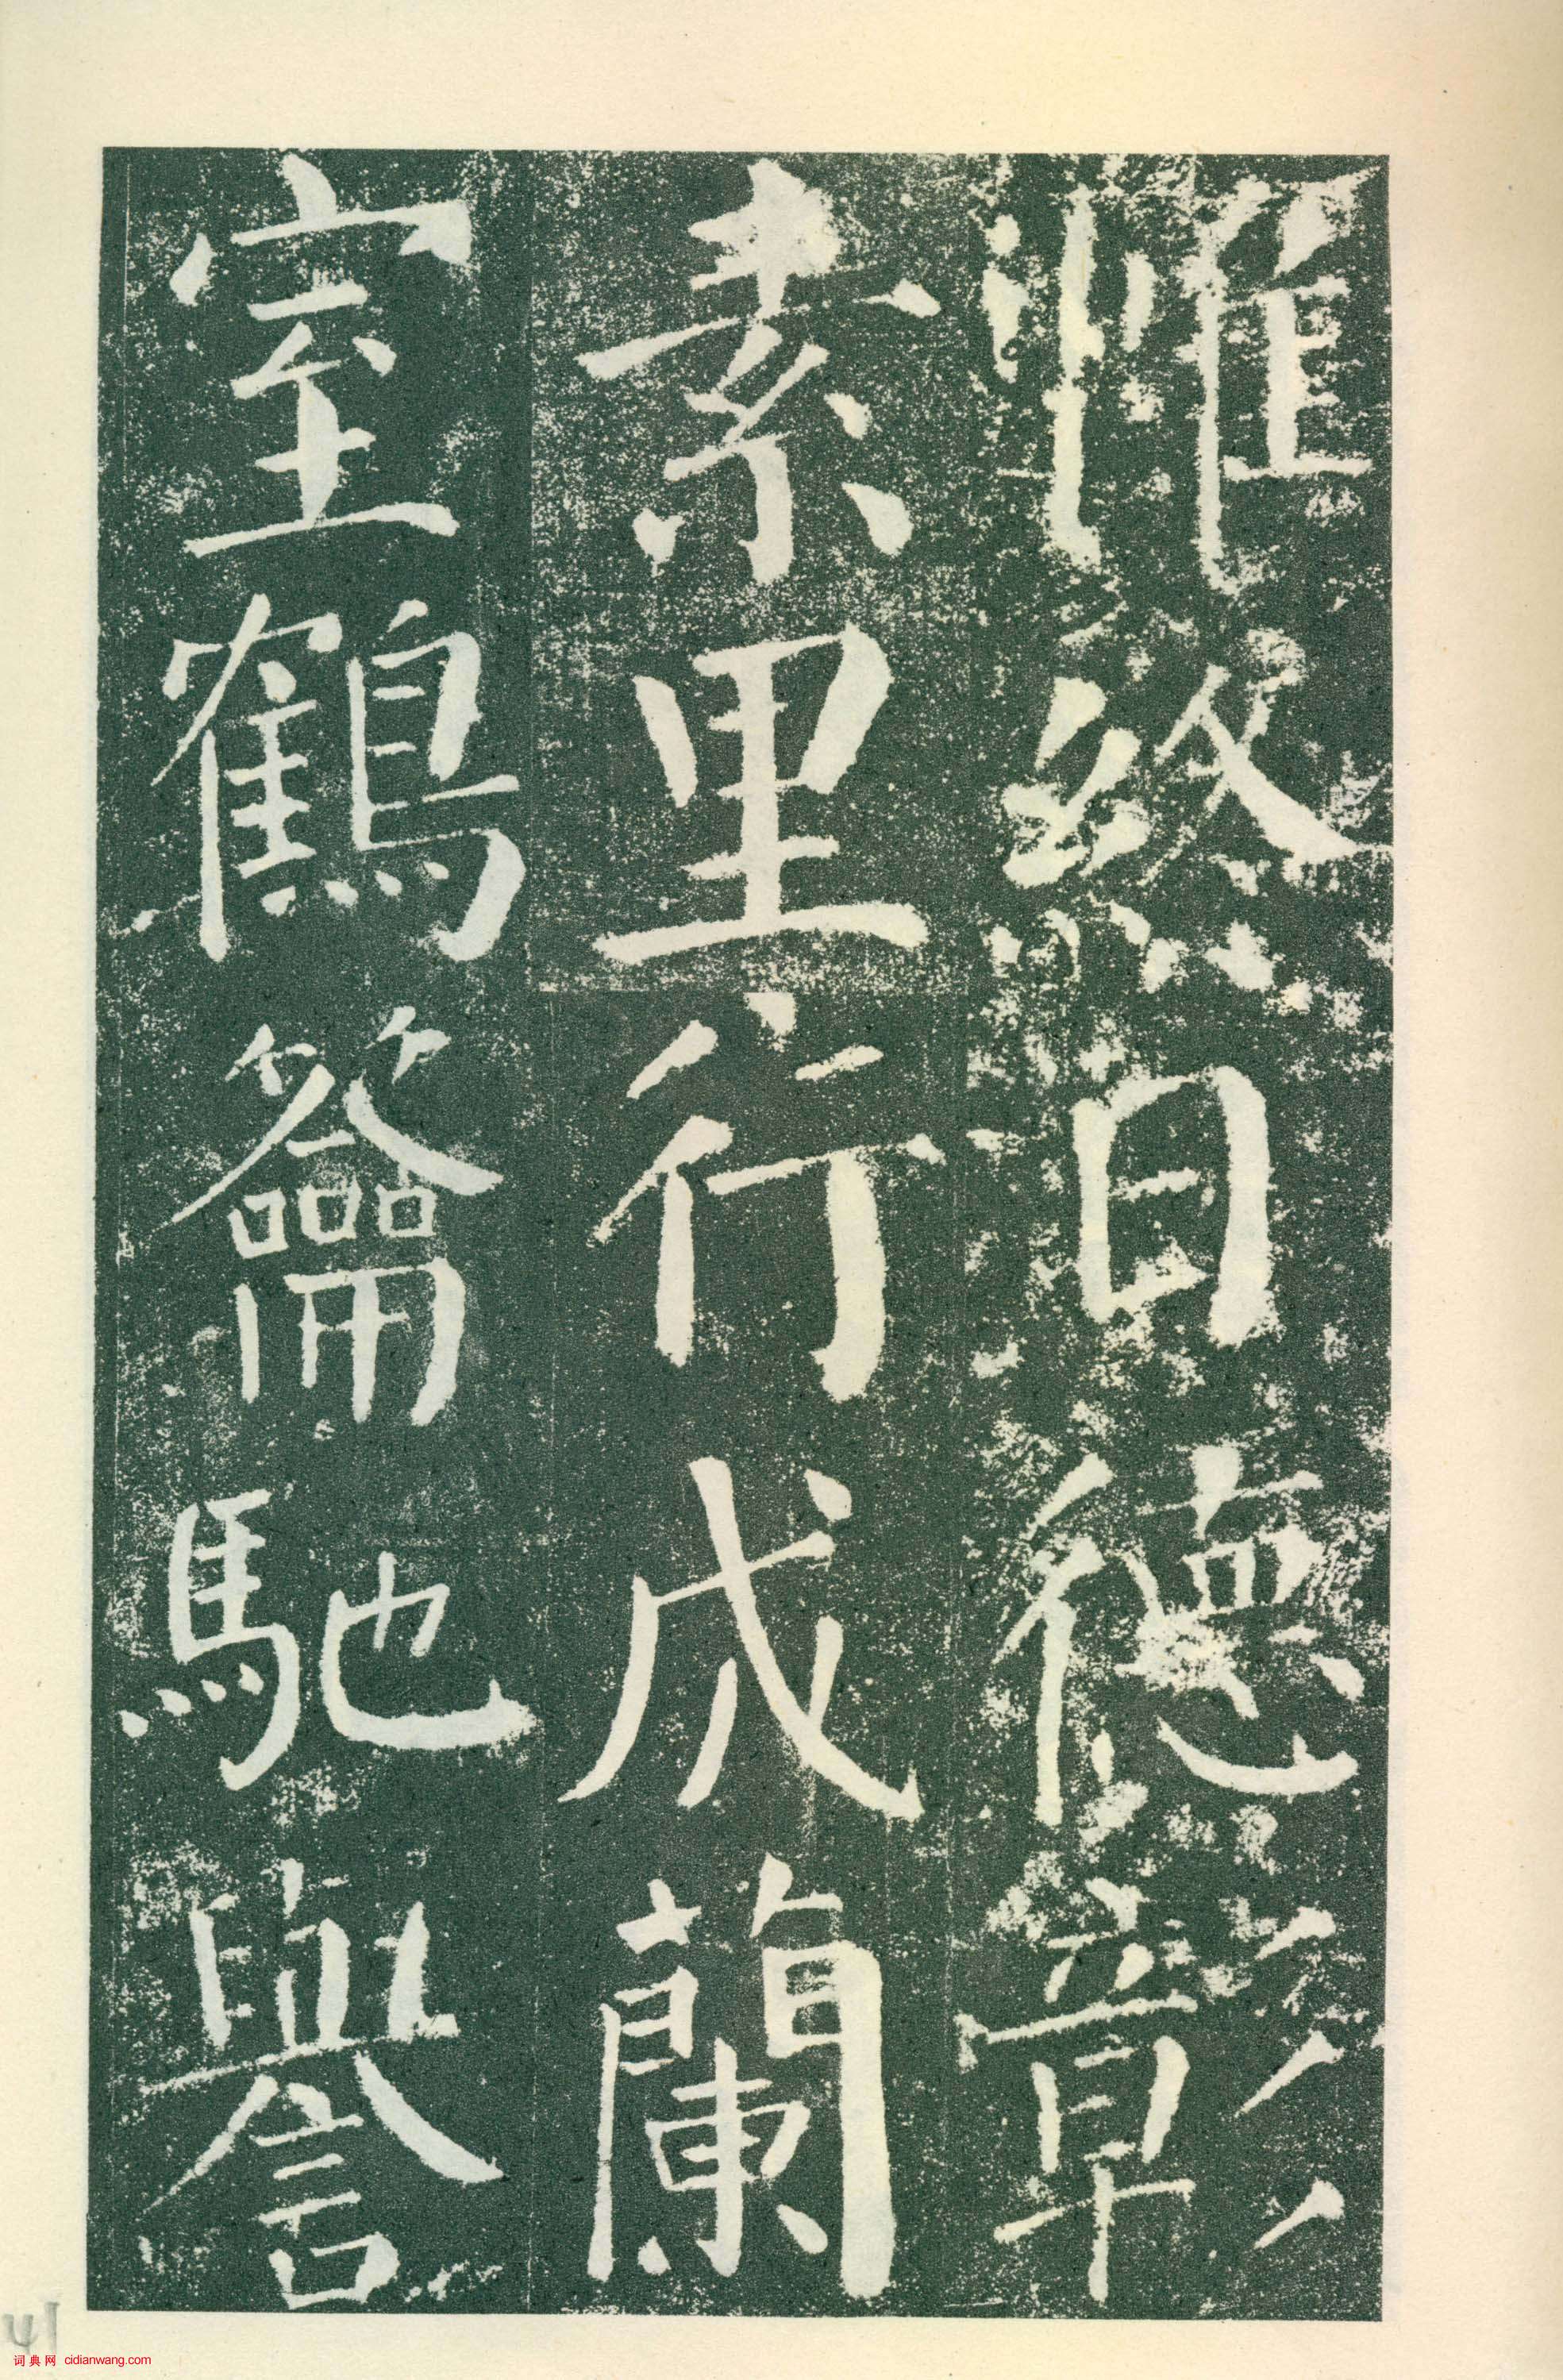 惟終日德彰
素里行成蘭
室鶴籥馳譽
41
词典网 cidianwang.com